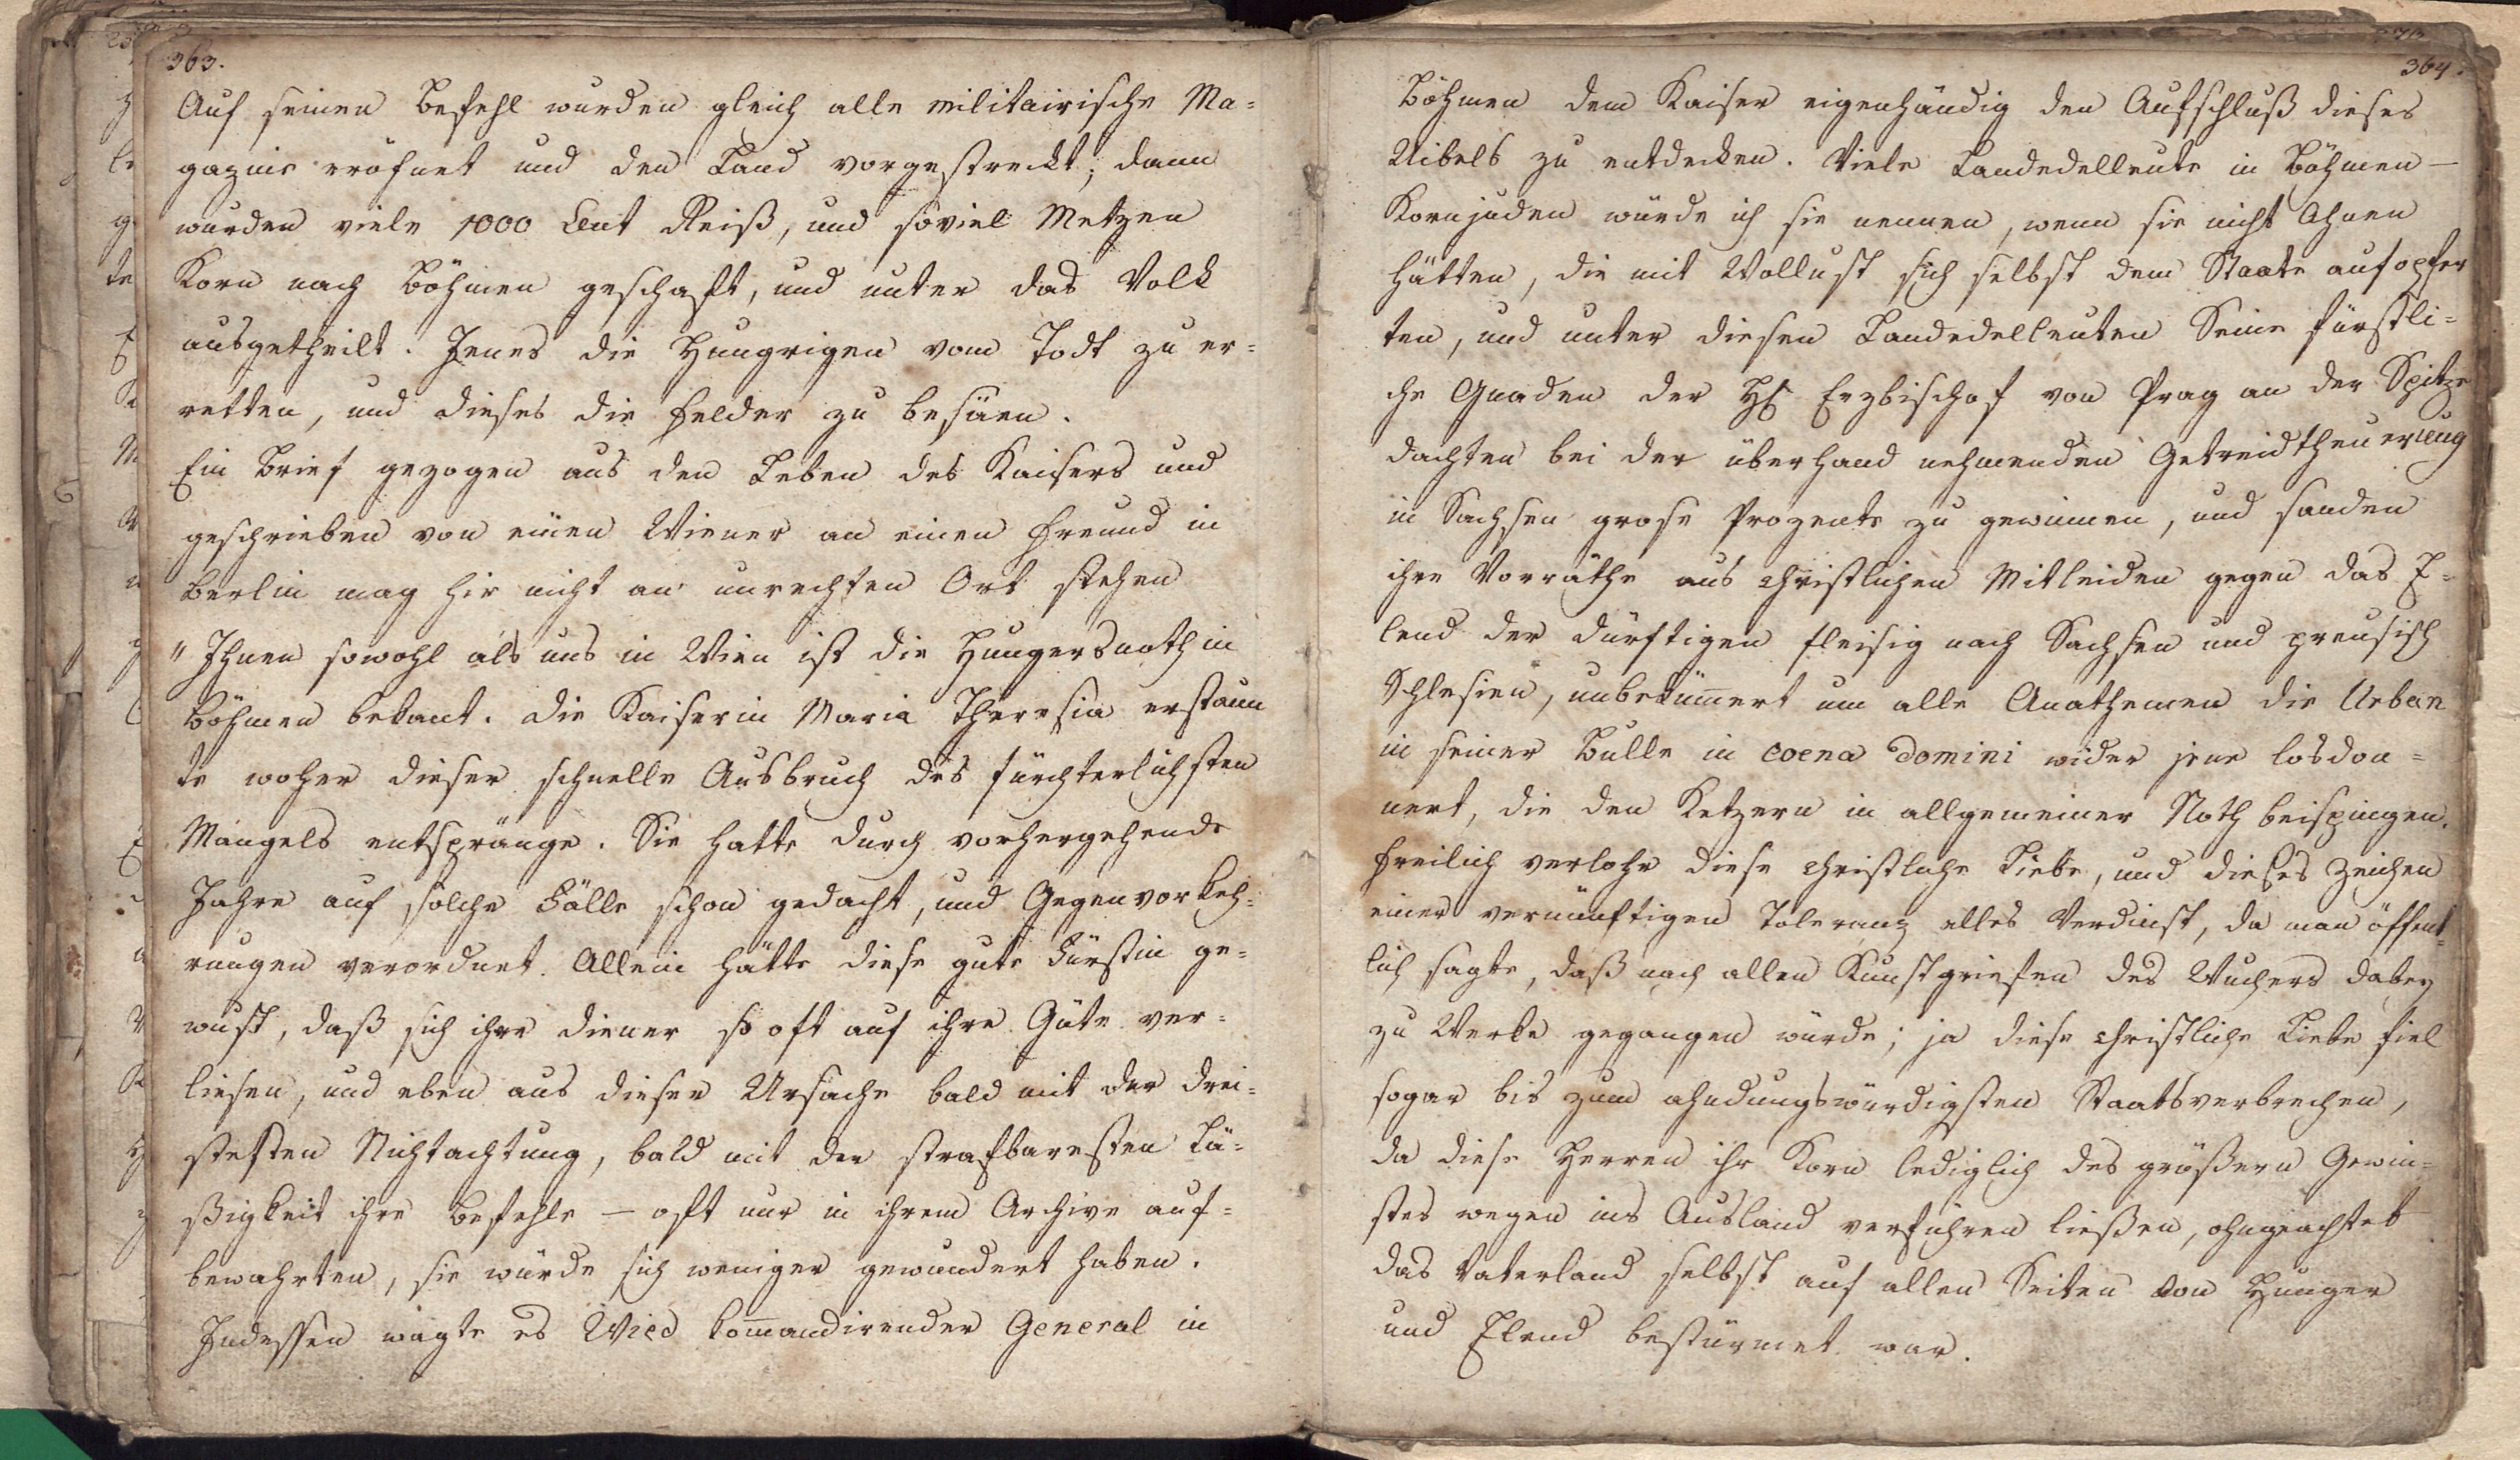 363.
Auf seinen Befehl wurden gleich alle militairische Ma=
gazine eröfnet und den Land vorgestreckt; dann
wurden viele 1000 Cent Reiß, und soviel Metzen
Korn nach Böhmen geschaft, und unter das Volk
ausgetheilt. Jenes die Hungrigen vom Todt zu er=
retten, und dieses die Felder zu besäen.
Ein Brief gezogen aus den Leben des Kaisers und
geschrieben von einen Wiener an einen Freund in
Berlin mag hir nicht an unrechten Ort stehen
"Ihnen sowohl als uns in Wien ist die Hungersnoth in
Böhmen bekant. die Kaiserin Maria Theresia erstaun
te woher dieser schnelle Ausbruch des fürchterlichsten
Mangels entspränge. Sie hatte durch vorhergehende
Jahre auf solche Fälle schon gedacht, und Gegenvorkeh=
rungen verordnet. Allein hätte diese gute Fürstin ge=
wust, daß sich ihre diener so oft auf ihre Güte ver=
liesen, und eben aus dieser Ursache bald mit der drei=
stesten Nichtachtung, bald mit der strafbaresten Lä=
ßigkeit ihre Befehle — oft nur in ihrem Archive auf=
bewahrten, sie würde sich weniger gewundert haben.
Indessen wagte es Wied kom̅andirender General in
364.
Böhmen dem Kaiser eigenhändig den Aufschluß dieses
Uibels zu entdecken. Viele Landedelleute in Böhmen —
Kornjuden würde ich sie nennen, wenn sie nicht Ahnen
hätten, die mit Wollust sich selbst dem Staate aufopfer
ten, und unter diesen Landedelleuten Seine fürstli=
che Gnaden der H: Erzbischof von Prag an der Spitze
dachten bei der überhand nehmenden Getreidtheuerung
in Sachsen grose Prozente zu gewinnen, und sanden
ihre Vorräthe aus christlichen Mitleiden gegen das E=
lend der dürftigen fleisig nach Sachsen und preusisch
Schlesien, unbeküm̅ert um alle Anathemen die Urban
in seiner Bulle in coena Domini wider jene losdon=
nert, die den Ketzern in allgemeiner Noth beispringen.
Freilich verlohr diese christliche Liebe, und dieses Zeichen
einer vernünftigen Toleranz alles Verdinst, da man öffent=
lich sagte, daß nach allen Kunstgriefen des Wuchers dabey
zu Werke gegangen würde; ja diese christliche Liebe fiel
sogar bis zum ahndungswürdigsten Staatsverbrechen,
da diese Herren ihr Korn lediglich des größern Gewin=
stes wegen ins Ausland verführen ließen, ohngeachtet
das Vaterland selbst auf allen Seiten von Hunger
und Elend bestürmet war.